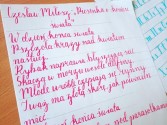 Czesław Miłosz, "Piosenka o końcu
świata"
W dzień końca świata
Pszczoła krąży nad kwiatem
nasturcji,
Rybak naprawia błyszczącą sieć.
Skaczą w morzu wesołe delfiny,
Młode wróble czepiają się rynny
I wąż ma złotą skórę, jak powinien
mieć.
końca świata
pod parasolkami